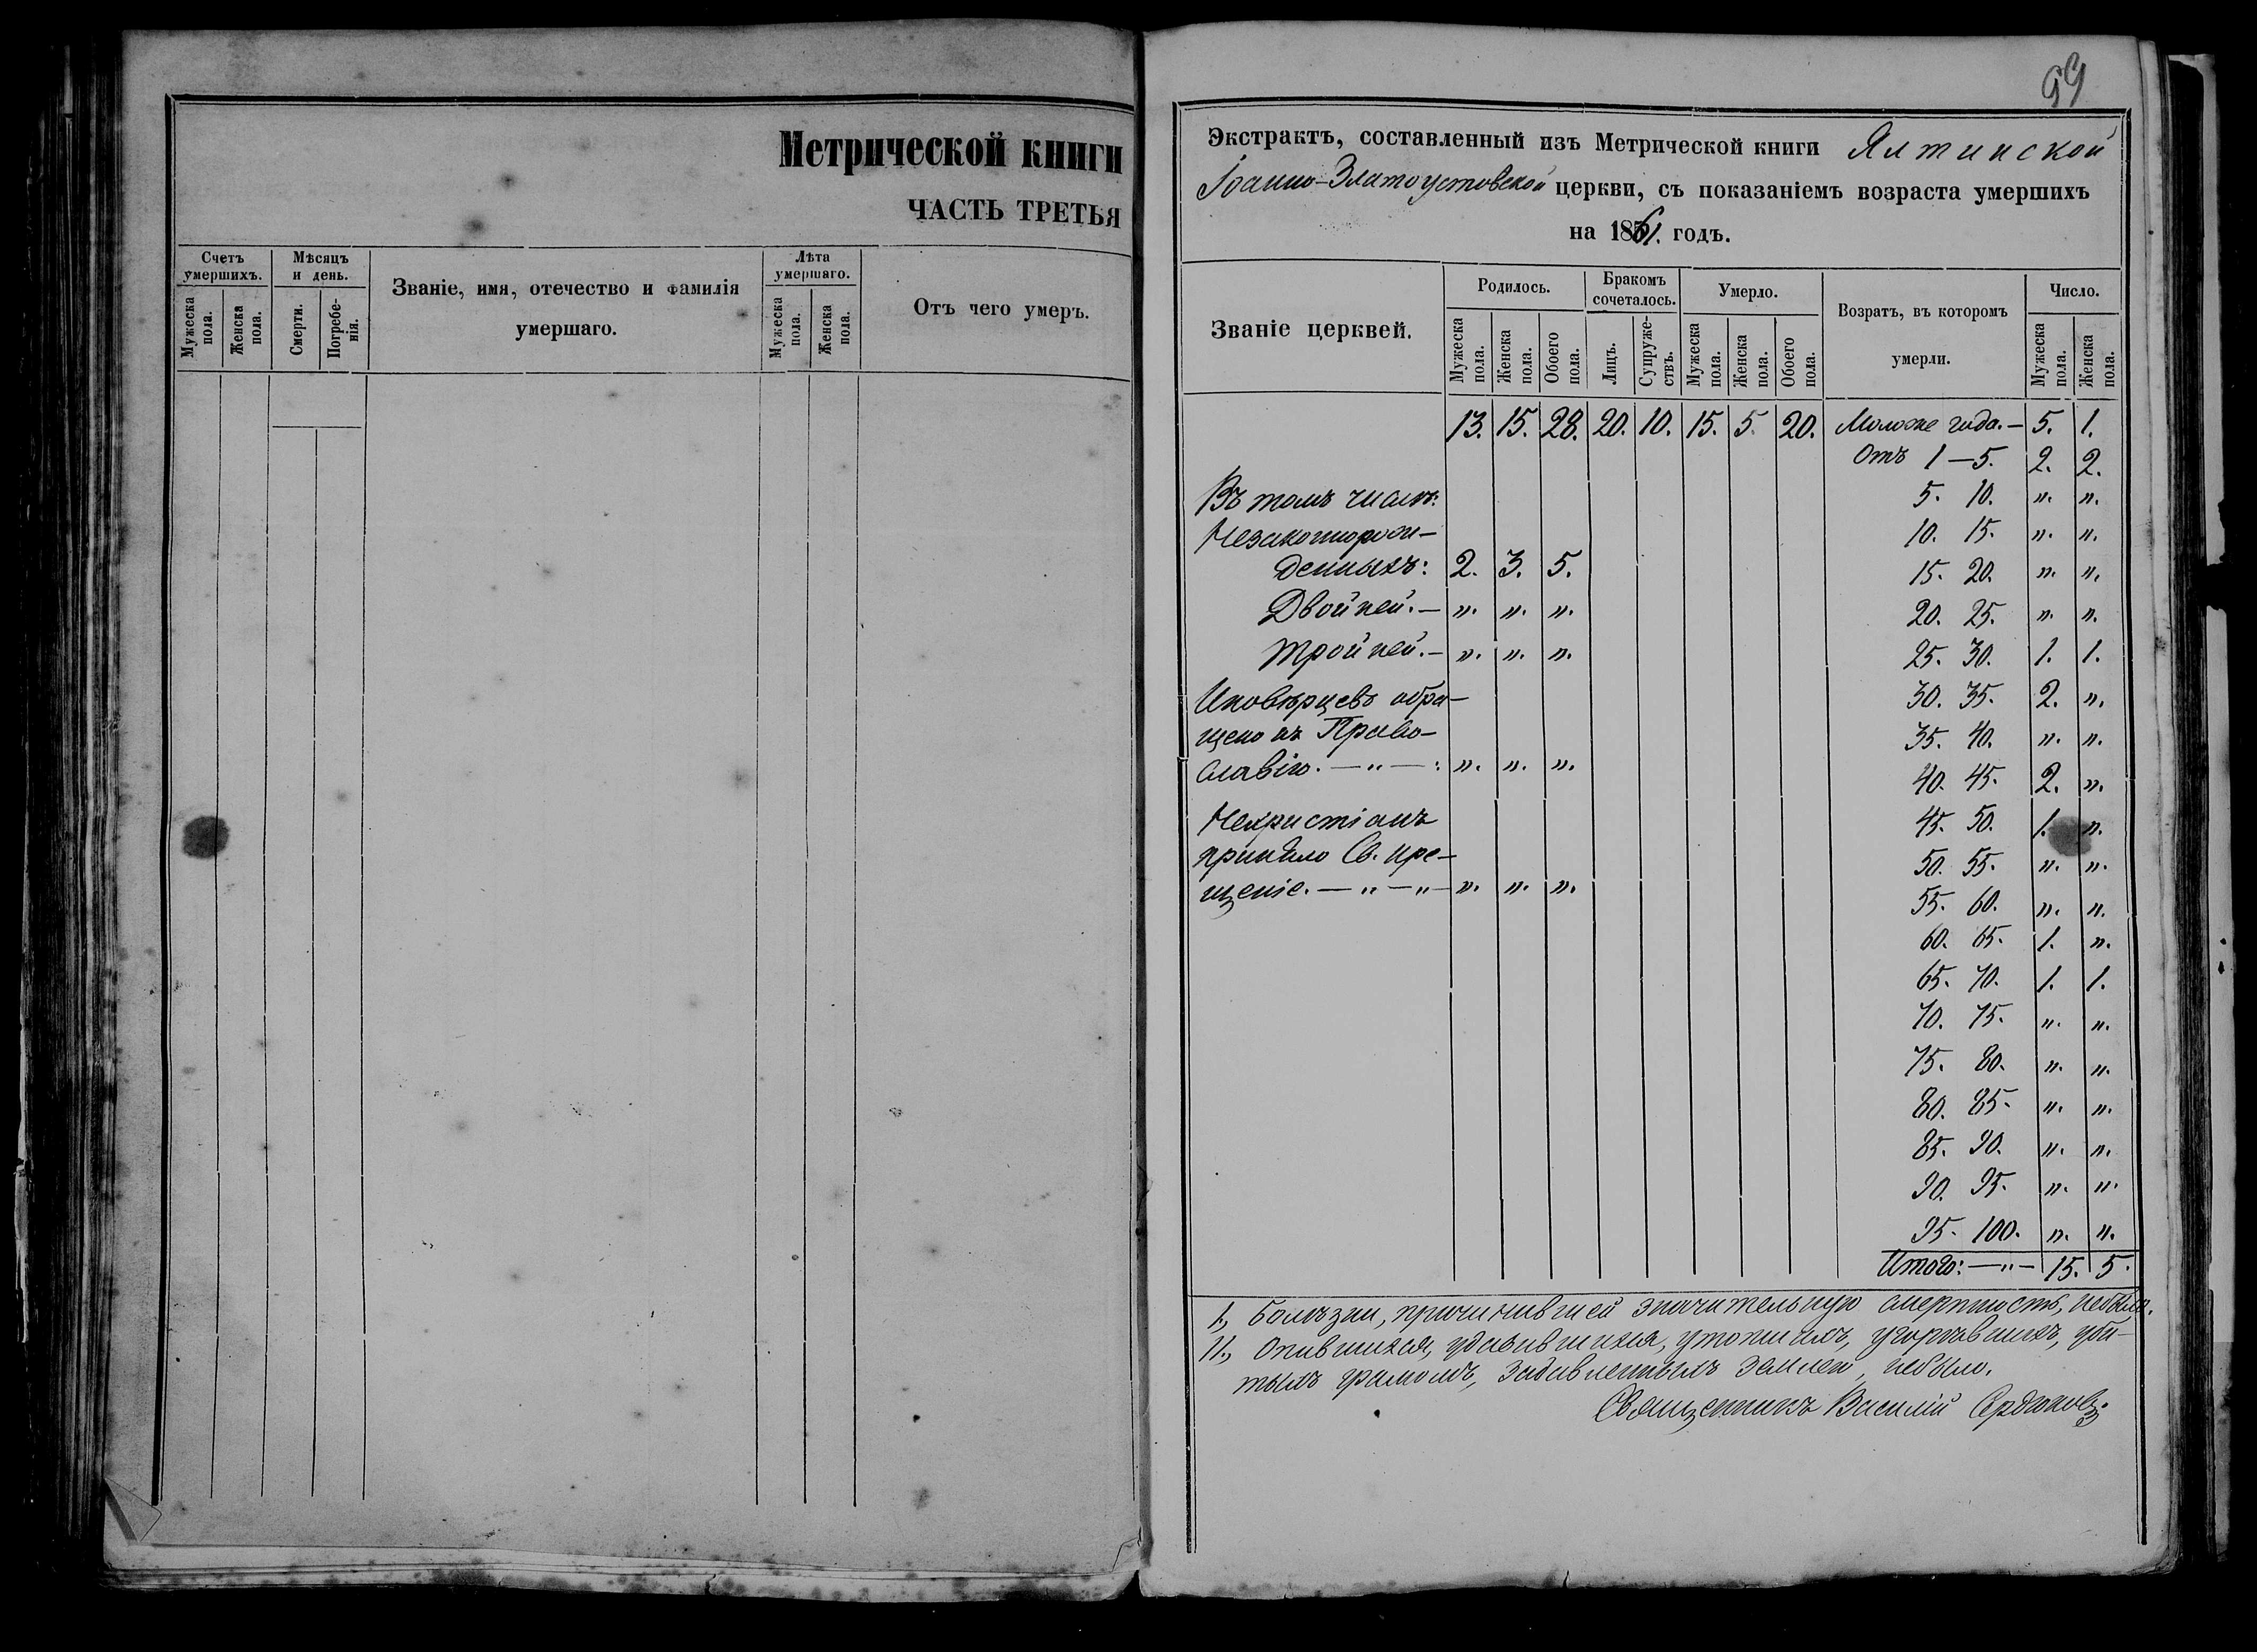 Метрической книги
ЧАСТЬ ТРЕТЬЯ
Счетъ умершихъ.
Мужеска пола.
Женска пола.
Мѣсяцъ и день.
Смерти.
Погребе-нія.
Званіе, имя, отечество и фамилія
умершаго.
Лѣта умершаго.
Мужеска пола.
Женска пола.
Отъ чего умеръ.
99
Экстрактъ, составленный изъ Метрической книги Ялтинской
Іоанно-Златоустовской церкви, съ показаніемъ возраста умершихъ
на 1861. годъ.
Званіе церквей.
Родилось.
Мужеска пола.
Женска пола.
Обоего пола.
Бракомъ сочеталось.
Лицъ.
Супруже-ствъ.
Умерло.
Мужеска пола.
Женска пола.
Обоего пола.
Возратъ, въ которомъ
умерли.
Число.
Мужеска пола.
Женска пола.
13. 15. 28. 20. 10. 15. 5. 20. Моложе года. — 5. 1.
Отъ 1 — 5. 2. 2.
Въ томъ числѣ: 5. 10. „. „.
Незаконнорож- 10. 15. „. „.
денныхъ: 2. 3. 5. 15. 20. „. „.
Двойней. — „. „. „. 20. 25. „. „.
Тройней. — „. „. „. 25. 30. 1. 1.
Иновѣрцевъ обра- 30. 35. 2. „.
щено къ Право- 35. 40. „. „.
славію. — „ — : „. „. „. 40. 45. 2. „.
Нехристіанъ 45. 50. 1. „.
приняло Св. кре- 50. 55. „. „.
щеніе. — „ — „ — „. „. „. 55. 60. „. „.
60. 65. 1. „.
65. 70. 1. 1.
70. 75. „. „.
75. 80. „. „.
80. 85. „. „.
85. 90. „. „.
90. 95. „. „.
95. 100. „. „.
Итого: — „ — 15. 5.
I., Болѣзни, причинившей значительную смертность, небыло.
II., Опившихся, удавившихся, утопшихъ, угорѣвшихъ, уби-
тыхъ громомъ, задавленныхъ землею, небыло.
Священникъ Василій